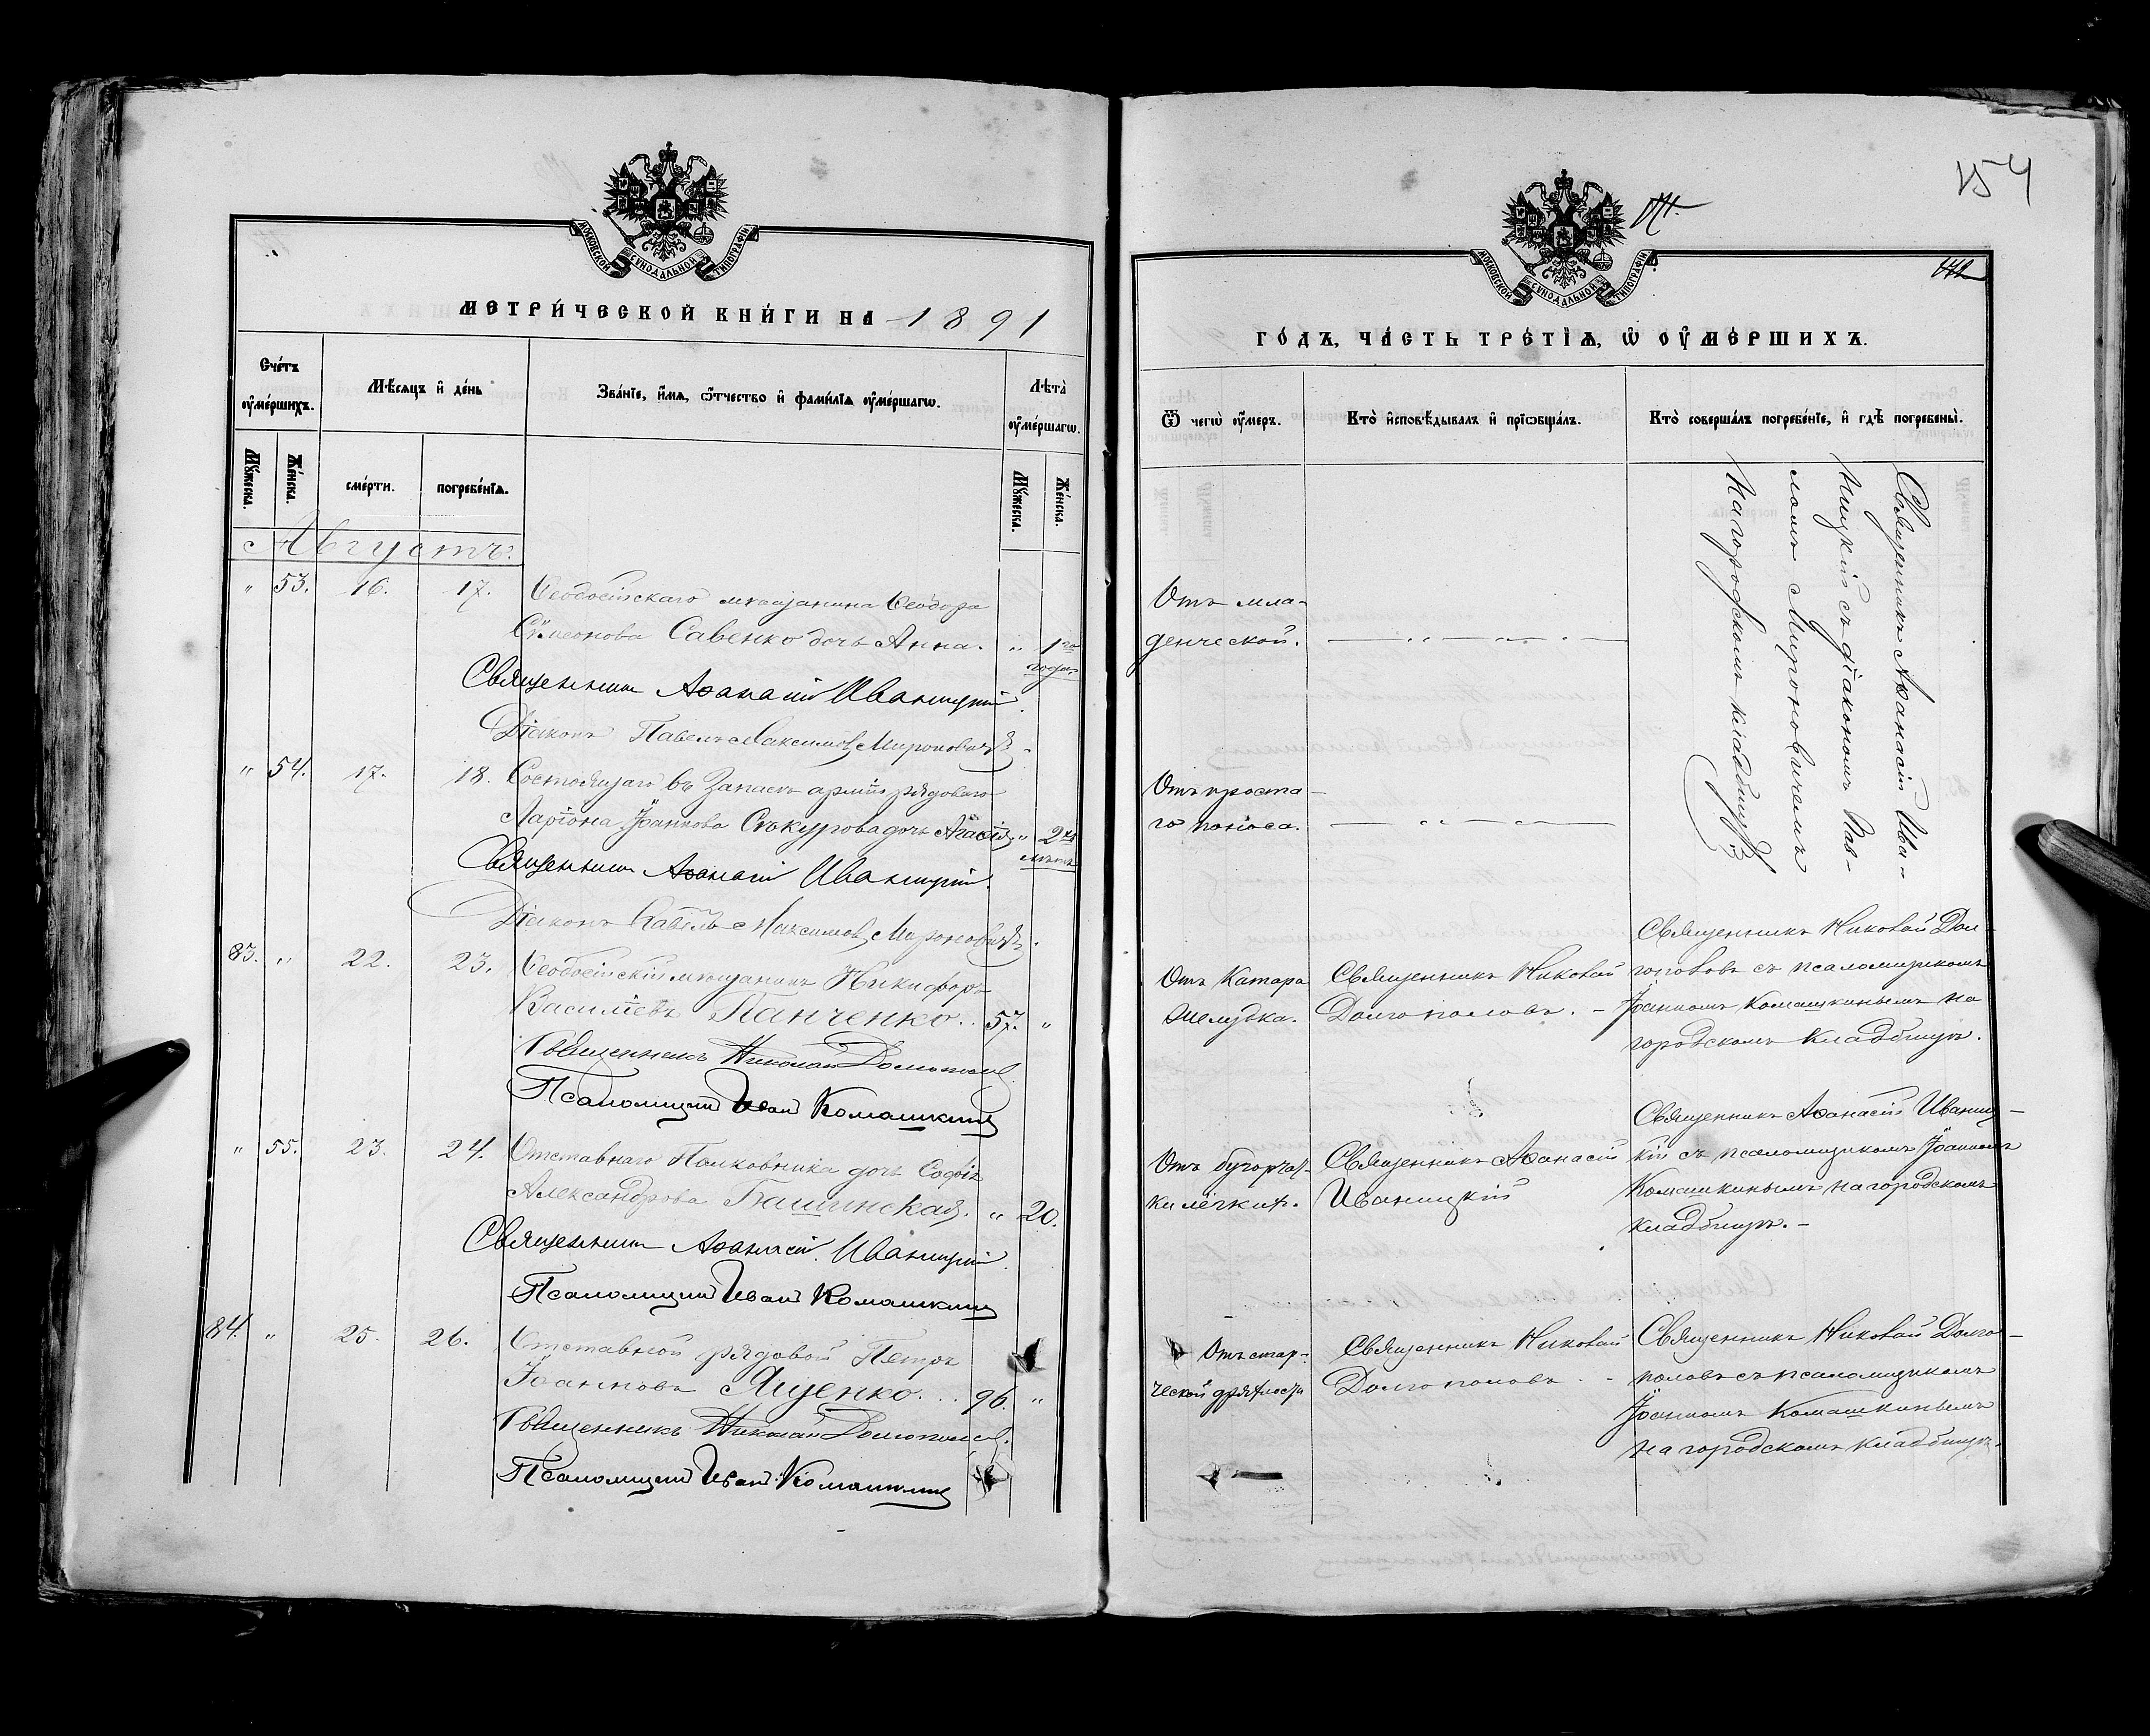 154
МОСКОВСКОЙ СѴНОДАЛЬНОЙ ТИПОГРАФІИ
МЕТРИ́ЧЕСКОЙ КНИ́ГИ НА 1891
Сче́тъ ᲂу҆ме́ршихъ.
Мѣ́сяцъ и҆ де́нь
Зва́нїе, и҆́мѧ, ѻ҆́тчество и҆ фами́лїѧ ᲂу҆ме́ршагѡ.
Лѣ́та ᲂу҆ме́ршагѡ.
Мꙋ́жеска.
Же́нска.
сме́рти.
погребе́нїѧ.
Мꙋ́жеска.
Же́нска.
Августъ.
" 53. 16. 17. Ѳеодосійскаго мѣщанина Ѳеодора
Сѵмеонова Савенко дочь Анна. " 1го
года
Священникъ Аѳанасій Иваницкій.
Діаконъ Павелъ Максимовъ Мироновичъ
" 54. 17. 18. Состоящаго въ Запасѣ арміи рядоваго
Ларіона Іоаннова дочь " 2хъ
лѣтъ
Священникъ Аѳанасій Иваницкій.
Діаконъ Павелъ Максимовъ Мироновичъ
83. " 22. 23. Ѳеодосійскій мѣщанинъ Никифоръ
Василіевъ Панченко.. 57. "
Священникъ Николай Долгополовъ
Псаломщикъ Иванъ Комашкинъ
" 55. 23. 24. Отставнаго Полковника дочь Софія
Александрова Башинская. " 20.
Священникъ Аѳанасій Иваницкій.
Псаломщикъ Иванъ Комашкинъ
84. " 25. 26. Отставной рядовой Петръ
Іоанновъ Яценко... 96. "
Священникъ Николай Долгополовъ.
Псаломщикъ Иванъ Комашкинъ
МОСКОВСКОЙ СѴНОДАЛЬНОЙ ТИПОГРАФІИ
ГО́ДЪ, ЧА́СТЬ ТРЕ́ТІѦ, Ѡ҆ ОУ҆МЕ́РШИХЪ.
Ѿ чегѡ̀ ᲂу҆́меръ.
Кто̀ и҆сповѣ́дывалъ и҆ прїѡбща́лъ.
Кто̀ соверша́лъ погребе́нїе, и҆ гдѣ̀ погребены̀.
Отъ мла-
денческой.
Священникъ Аѳанасій Ива-
ницкій съ діакономъ Пав-
ломъ Мироновичемъ
на городскомъ кладбищѣ
Отъ проста-
го поноса.
Отъ Катара
желудка.
Священникъ Николай
Долгополовъ. -
Священникъ Николай Дол-
гополовъ съ псаломщикомъ
Іоанномъ Комашкинымъ на
городскомъ кладбищѣ.
Отъ бугорчат-
ки лёгкихъ.
Священникъ Аѳанасій
Иваницкій
Священникъ Аѳанасій Иваниц-
кій съ псаломщикомъ Іоанномъ
Комашкинымъ на городскомъ
кладбищѣ. -
Отъ стар-
ческой дряхлости
Священникъ Николай
Долгополовъ. -
Священникъ Николай Долго-
половъ съ псаломщикомъ
Іоанномъ Комашкинымъ
на городскомъ кладбищѣ.